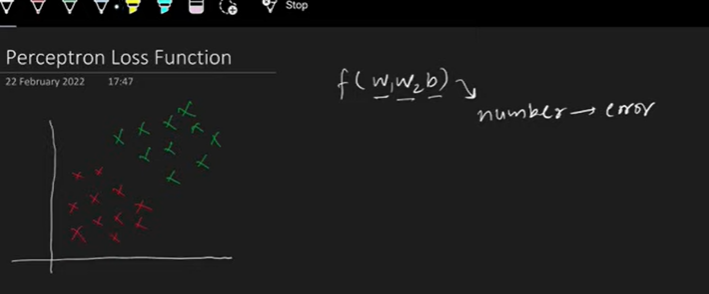 Stop
Perceptron Loss Function
22 February 2022 17:47
f(w₁w₂b)
number → error